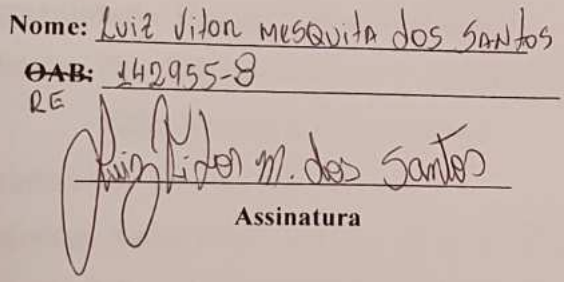 Nome: Luiz Vitor MESQUITA dos SANtos
OAB: 142955-8
RE
Luiz Vitor M. dos Santos
Assinatura